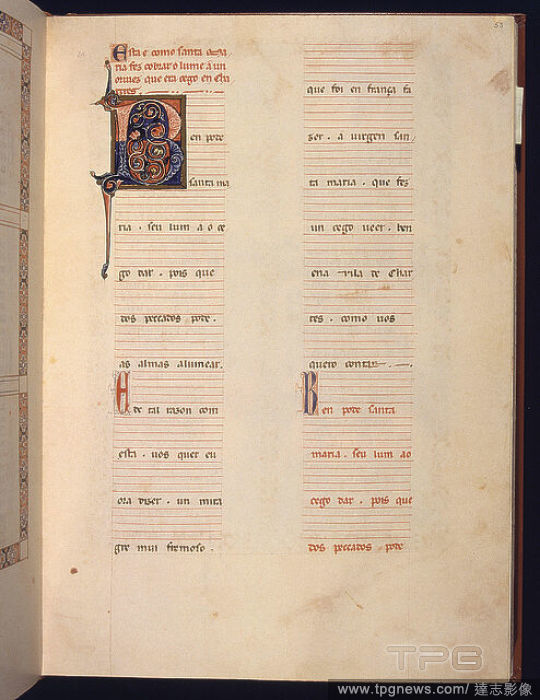 53
Esta e como santa ma
ria fez cobrar o lume a un
orives que era cego en cha
rtres.
Ben pode
santa ma
ria . seu lum a o ce
go dar . pois que
dos peccados pode .
as almas alumear.
E de tal razon com
esta . vos quer eu
ora dizer . un mira
gre mui fremoso .
que foi en frança fa
zer . a virgen san
ta maria . que fez
un cego veer . ben
ena vila de Char
tes . como vos
quero contar .
Ben pode santa
maria . seu lum ao
cego dar . pois que
dos peccados pode
TPG
www.tpgnews.com/達志影像